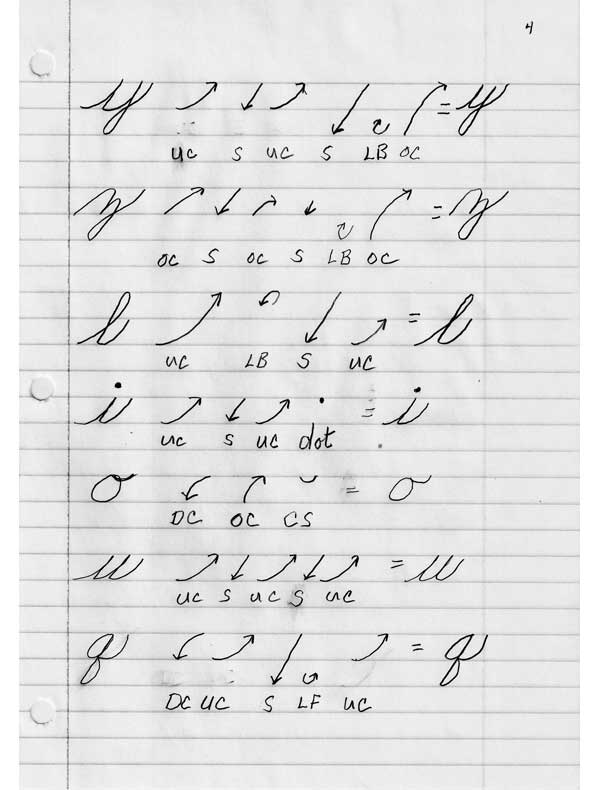 4
y = y
uc s uc s LB oc
z = z
oc s oc s LB oc
l = l
uc LB s uc
i = i
uc s uc dot
o = o
DC OC CS
u = u
uc s uc s uc
q = q
DC UC s LF uc